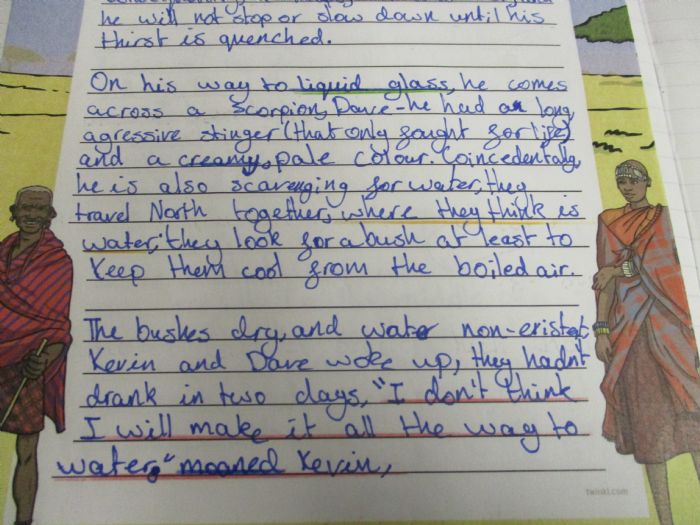 he will not stop or slow down until his
thirst is quenched.
On his way to liquid glass, he comes
across a scorpion, Dave - he had an long,
agressive stinger (that only fought for life)
and a creamy, pale colour. Coincedentaly
he is also scavenging for water, they
travel North together, where they think is
water; they look for a bush at least to
keep them cool from the boiled air.
The bushes dry, and water non-existent,
Kevin and Dave woke up, they hadn't
drank in two days, "I don't think
I will make it all the way to
water," moaned Kevin,
twinkl.com